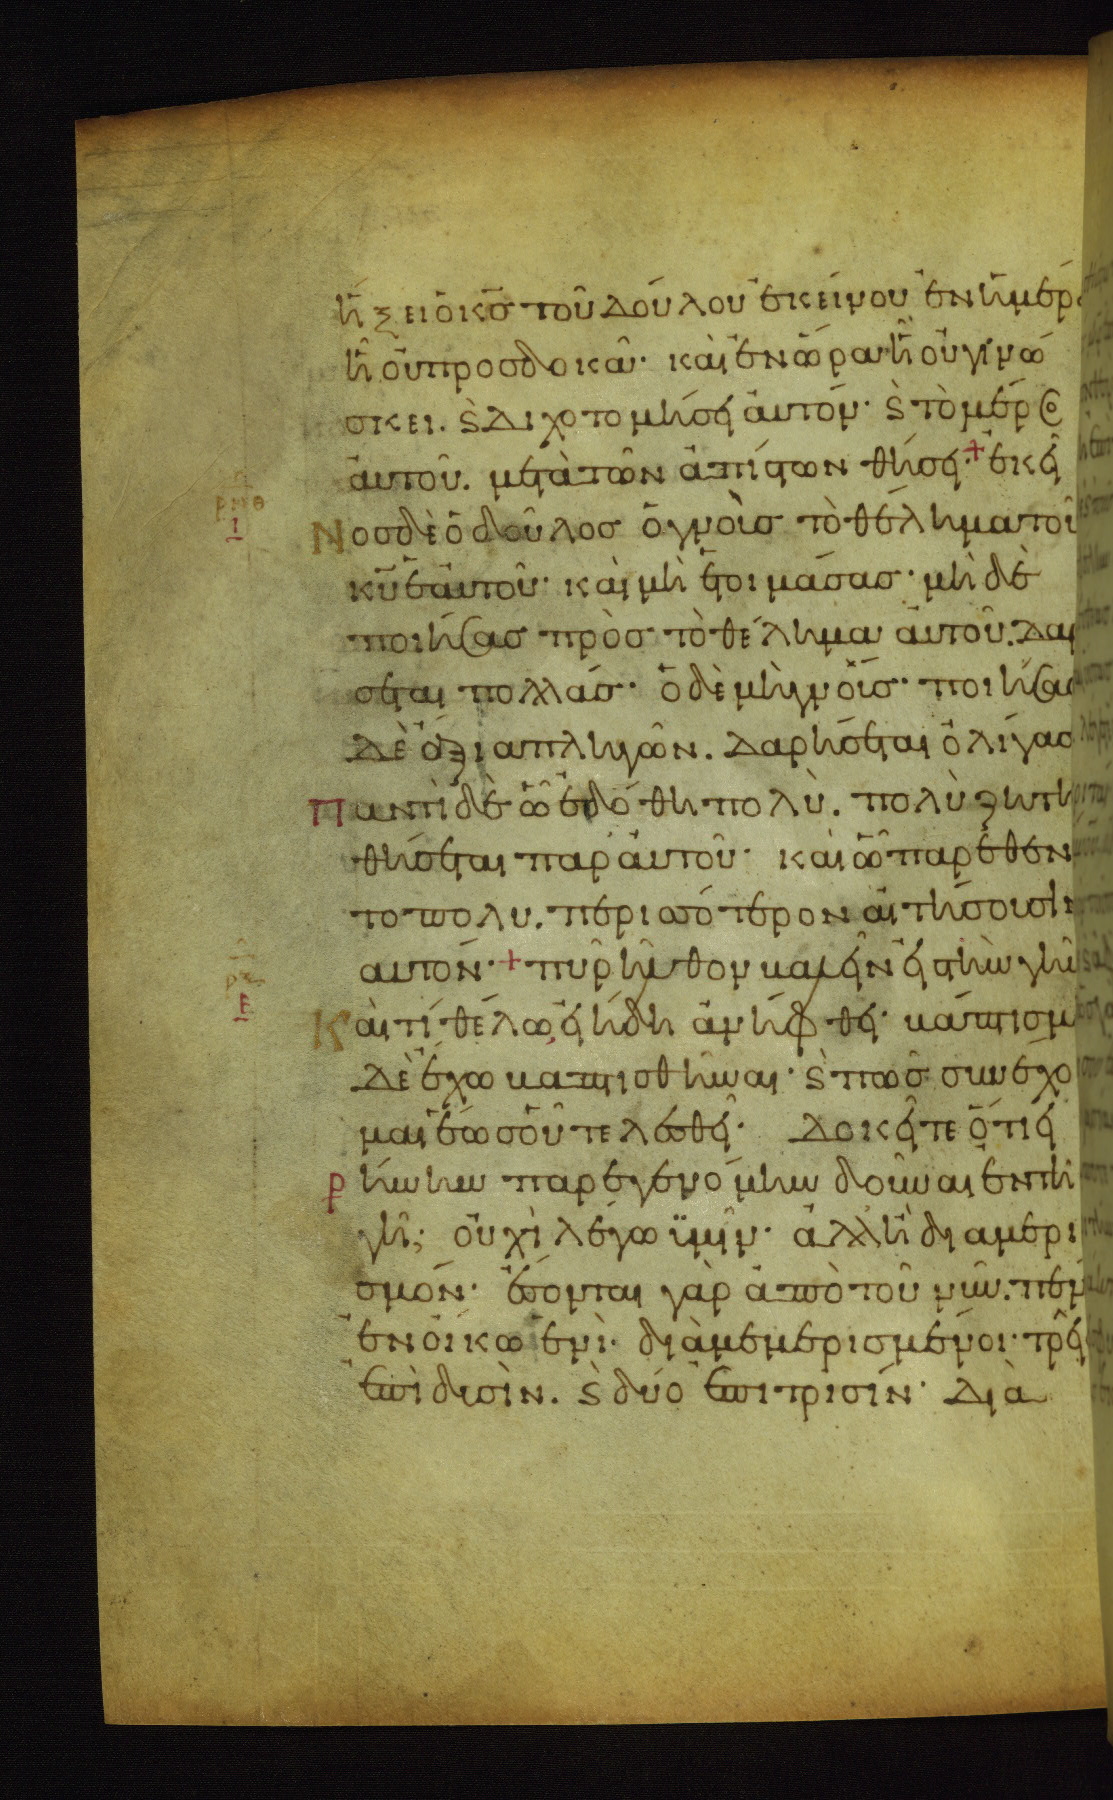 ἥξει ὁ κ̅ς̅ τοῦ δούλου ἐκείνου ἐν ἡμέρα
ἧ οὐ προσδοκᾶ· καὶ ἐν ὥρα ἧ οὐ γινώ
σκει. ϛ̀ διχοτομήσει αὐτόν· ϛ̀ τὸ μέρος
αὐτοῦ. μετὰ τῶν ἀπίστων θήσει· + ἐκεῖ
νοσ δὲ ὁ δοῦλοσ ὁ γνοὺσ τὸ θέλημα τοῦ
κ̅υ̅ ἑαυτοῦ· καὶ μὴ ἑτοιμάσασ· μὴ δὲ
ποιήσασ πρὸσ τὸ θέλημα αὐτοῦ. δαρ
σεται πολλάσ· ὁ δὲ μὴ γνοὺσ· ποιήσασ
δὲ ἄξια πληγῶν. δαρήσεται ὀλίγασ
παντὶ δὲ ὧ ἐδόθη πολὺ. πολὺ ζητη
θήσεται παρ αὐτοῦ· καὶ ὧ παρέθεν
το πολυ. περισσότερον αἰτήσουσιν
αυτόν· + πῦρ ἦλθον βαλεῖν εἰσ τὴν γῆν
καὶ τί θέλω εἰ ἤδη ἀνήφθη· βάπτισμα
δὲ ἔχω βαπτισθῆναι· ϛ̀ πῶσ συνέχο
μαι ἕωσ οὗ τελεσθῆ· δοκεῖτε ὅτι εἰ
ρήνην παρεγενόμην δοῦναι ἐν τῆ
γῆ; οὐχὶ λέγω ὑμῖν· ἀλλ ἢ διαμερι
σμόν· ἔσονται γὰρ ἀπὸ τοῦ νῦν. πέν
ἐν οἴκω ἑνὶ· διαμεμερισμένοι· τρεῖ
ἐπὶ δυσὶν. ϛ̀ δύο ἐπι τρισίν· δια